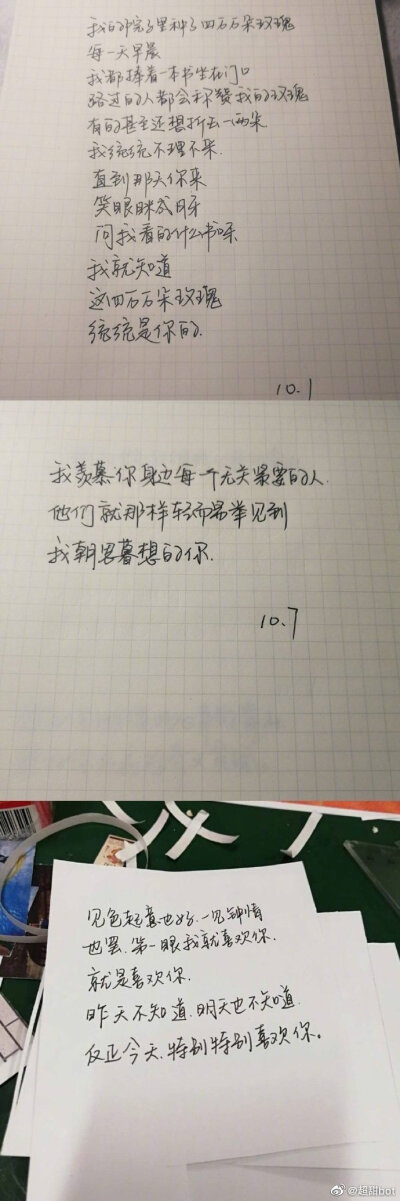 我的那院子里种了四万万朵玫瑰
每一天早晨
我都捧着一本书坐在门口
路过的人都会称赞我的玫瑰
有的甚至还想折去一两朵
我统统不理不采
直到那天你来
笑眼眯成月牙
问我看的什么书呀
我就知道
这四万万朵玫瑰
统统是你的.
10.1
我羡慕你身边每一个无关紧要的人.
他们就那样轻而易举见到
我朝思暮想的你.
10.7
见色起意也好.一见钟情
也罢.第一眼我就喜欢你.
就是喜欢你.
昨天不知道.明天也不知道.
反正今天.特别特别喜欢你。
@超甜bot